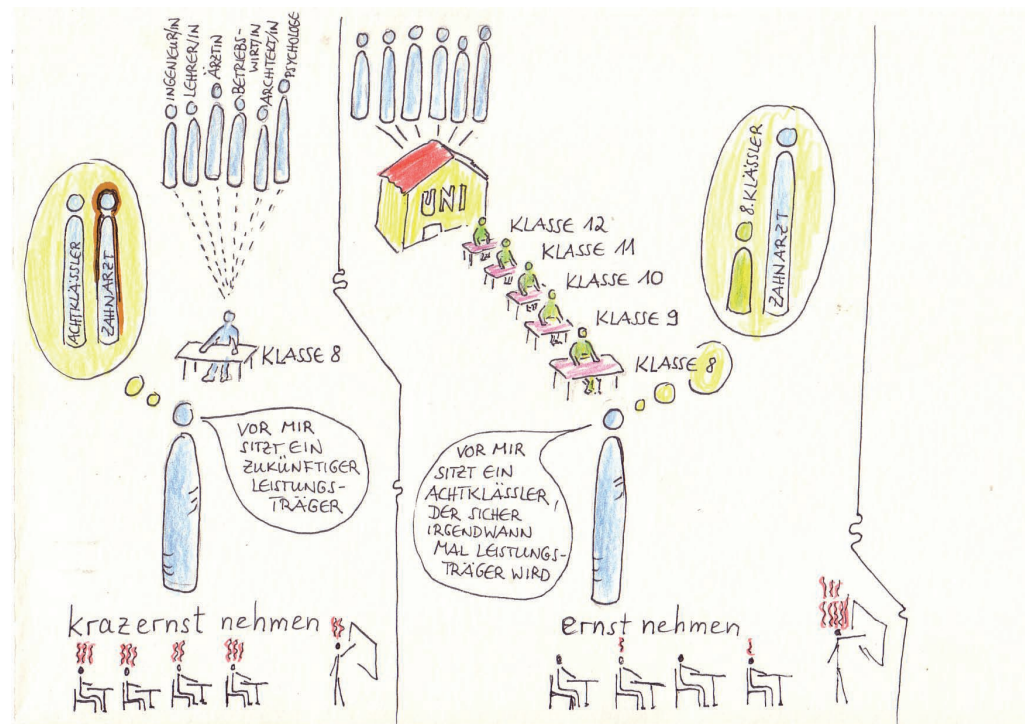 INGENIEUR/IN
LEHRER/IN
ÄRZTIN
BETRIEBS-
WIRT/IN
ARCHITEKT/IN
PSYCHOLOGE
ACHTKLÄSSLER
ZAHNARZT
KLASSE 8
VOR MIR
SITZT EIN
ZUKÜNFTIGER
LEISTUNGS-
TRÄGER
krazernst nehmen
UNI
KLASSE 12
KLASSE 11
KLASSE 10
KLASSE 9
KLASSE 8
8. KLÄSSLER
ZAHNARZT
VOR MIR
SITZT EIN
ACHTKLÄSSLER,
DER SICHER
IRGENDWANN
MAL LEISTUNGS-
TRÄGER WIRD
ernst nehmen